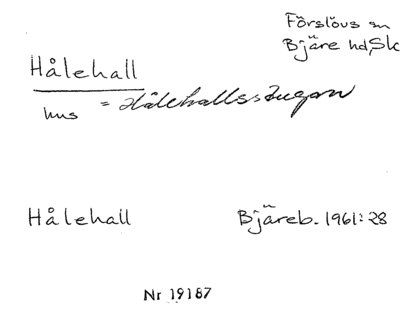 Förslövs sn
Bjäre hd, Sk
Hålehall
hus = Hålehallsstugan
Hålehall Bjäreb. 1961:28
Nr 19187